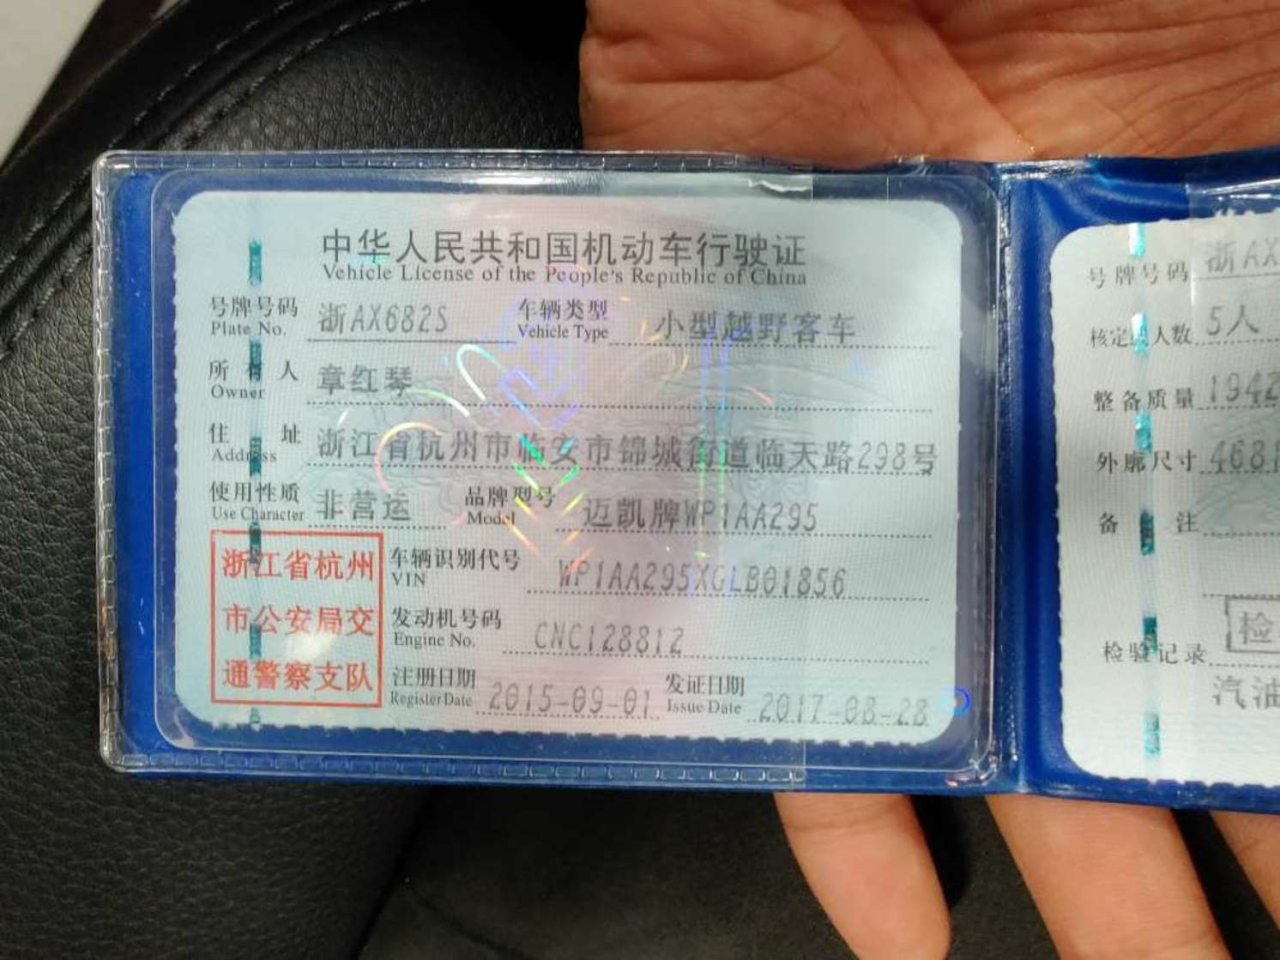 中华人民共和国机动车行驶证
Vehicle License of the People's Republic of China
号牌号码 浙AX682S 车辆类型 小型越野客车
Plate No. Vehicle Type
所有人 章红琴
Owner
住址 浙江省杭州市临安市锦城街道临天路298号
Address
使用性质 非营运 品牌型号 迈凯牌WP1AA295
Use Character Model
浙江省杭州
市公安局交
通警察支队
车辆识别代号 WP1AA295XGLB01856
VIN
发动机号码 CNC128812
Engine No.
注册日期 2015-09-01 发证日期 2017-08-28
Register Date Issue Date
号牌号码 浙AX
核定载人数 5人
整备质量 1942
外廓尺寸 4681
备注
检
检验记录
汽油